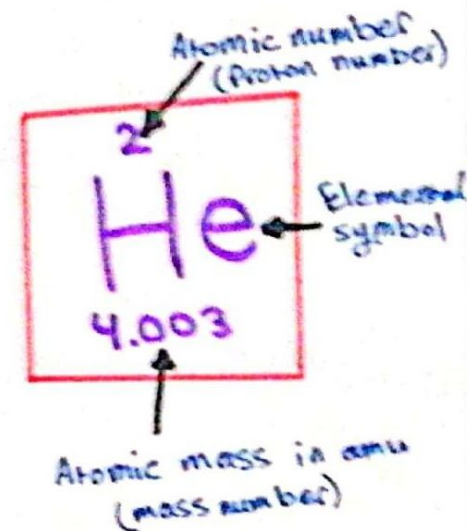 Atomic number
(Proton number)
2
He
Elemental
symbol
4.003
Atomic mass in amu
(mass number)